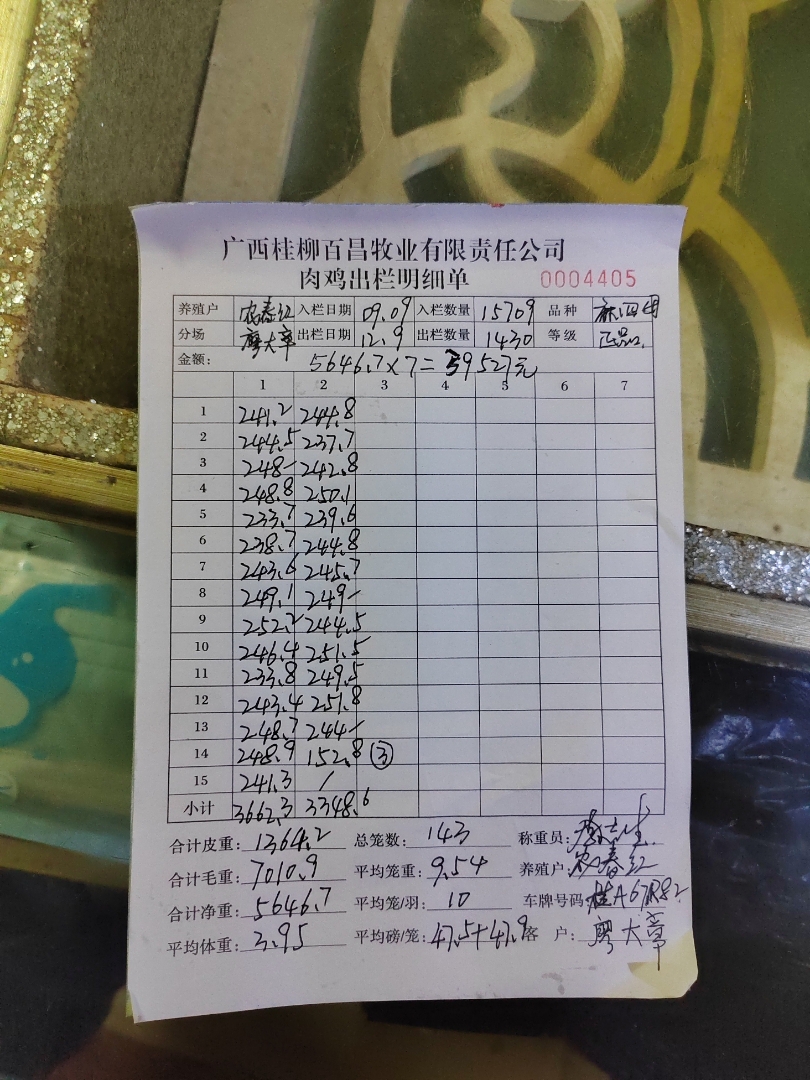 广西桂柳百昌牧业有限责任公司
肉鸡出栏明细单 0004405
养殖户 农春红 入栏日期 09.09 入栏数量 15709 品种
分场 廖大章 出栏日期 12.9 出栏数量 1430 等级 正品
金额: 5646.7×7=39527元
1 2 3 4 5 6 7
1 241.2 244.8
2 244.5 237.7
3 248- 242.8
4 248.8 250.1
5 233.7 239.6
6 238.7 244.8
7 243.6 245.7
8 249.1 249-
9 252.2 244.5
10 246.4 251.5
11 233.8 249.5
12 243.4 251.8
13 248.7 244-
14 248.9 152.8 ③
15 241.3 /
小计 3662.3 3348.6
合计皮重: 1364.2 总笼数: 143 称重员:
合计毛重: 7010.9 平均笼重: 9.54 养殖户: 农春红
合计净重: 5646.7 平均笼/羽: 10 车牌号码: 桂A67R82
平均体重: 3.95 平均磅/笼: 47.5+47.9 客 户: 廖大章